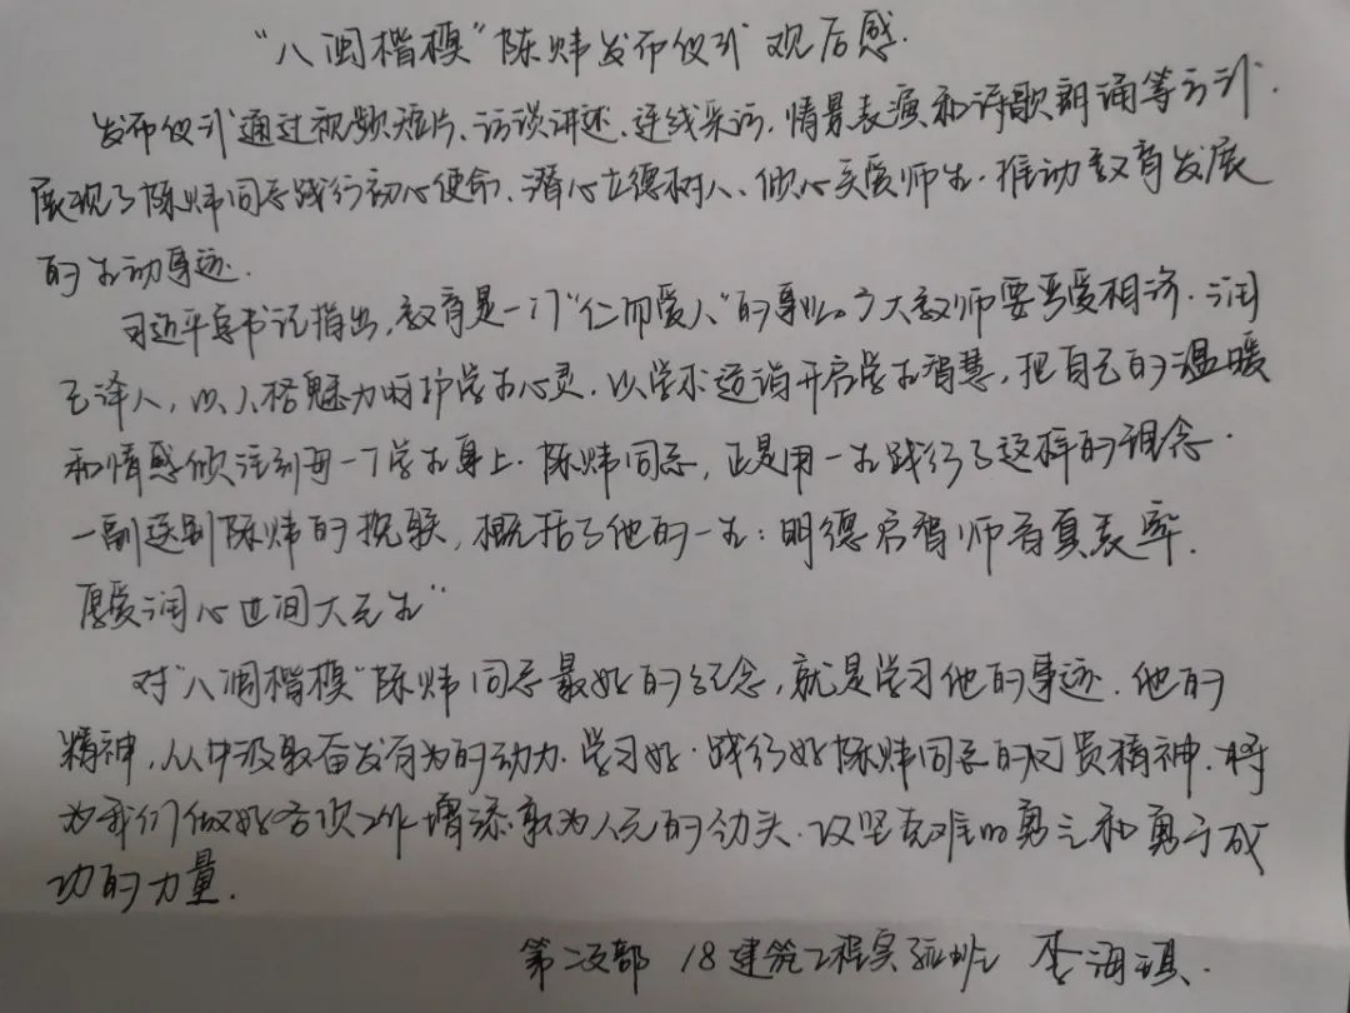 “八闽楷模”陈炜发布仪式 观后感.
发布仪式通过视频短片、访谈讲述、连线采访、情景表演和诗歌朗诵等方式.
展现了陈炜同志践行初心使命、潜心立德树人、倾心关爱师生.推动教育发展
的生动事迹.
习近平总书记指出,教育是一门“仁而爱人”的事业。广大教师要严爱相济.润
己泽人,以人格魅力呵护学生心灵.以学术造诣开启学生智慧,把自己的温暖
和情感倾注到每一个学生身上.陈炜同志,正是用一生践行了这样的理念.
一副送别陈炜的挽联,概括了他的一生:明德启智师者真表率.
厚爱润心世间大先生”
对“八闽楷模”陈炜同志最好的纪念,就是学习他的事迹.他的
精神,从中汲取奋发有为的动力.学习好.践行好陈炜同志的可贵精神.将
为我们做好各项工作增添敢为人先的劲头.攻坚克难的勇气和勇于成
功的力量.
第二支部 18建筑工程实验班 李海琪.